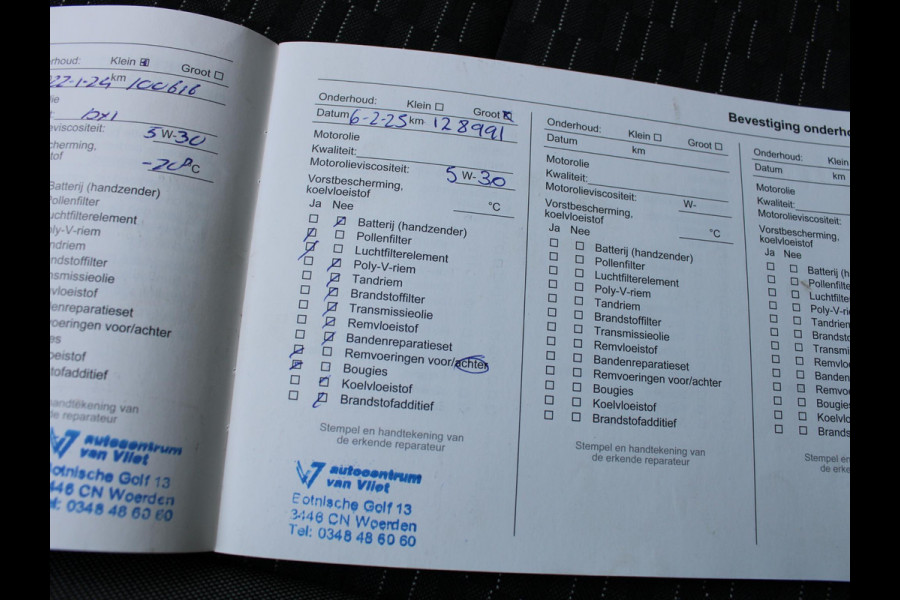 rhoud: Klein Groot
22-1-24 km 100616
lie
t: DX1
viscositeit: 5 W-30
cherming,
tof -20 °C
Batterij (handzender)
ollenfilter
uchtfilterelement
oly-V-riem
ndriem
ndstoffilter
nsmissieolie
vloeistof
denreparatieset
oeringen voor/achter
es
oeistof
tofadditief
andtekening van
de reparateur
autocentrum
van Vliet
otnische Golf 13
446 CN Woerden
l: 0348 48 60 60
Onderhoud: Klein Groot
Datum 6-2-25 km 128991
Motorolie
Kwaliteit:
Motorolieviscositeit: 5 W-30
Vorstbescherming,
koelvloeistof °C
Ja Nee
Batterij (handzender)
Pollenfilter
Luchtfilterelement
Poly-V-riem
Tandriem
Brandstoffilter
Transmissieolie
Remvloeistof
Bandenreparatieset
Remvoeringen voor/achter
Bougies
Koelvloeistof
Brandstofadditief
Stempel en handtekening van
de erkende reparateur
autocentrum
van Vliet
Botnische Golf 13
3446 CN Woerden
Tel: 0348 48 60 60
Bevestiging onderho
Onderhoud: Klein Groot
Datum km
Motorolie
Kwaliteit:
Motorolieviscositeit: W-
Vorstbescherming,
koelvloeistof °C
Ja Nee
Batterij (handzender)
Pollenfilter
Luchtfilterelement
Poly-V-riem
Tandriem
Brandstoffilter
Transmissieolie
Remvloeistof
Bandenreparatieset
Remvoeringen voor/achter
Bougies
Koelvloeistof
Brandstofadditief
Stempel en handtekening van
de erkende reparateur
Onderhoud: Klein
Datum km
Motorolie
Kwaliteit:
Motorolieviscositeit:
Vorstbescherming,
koelvloeistof
Ja Nee
Batterij (h
Pollenfilte
Luchtfilte
Poly-V-rie
Tandriem
Brandsto
Transmi
Remvloe
Banden
Remvo
Bougies
Koelvlo
Brands
Stempel en
de erke